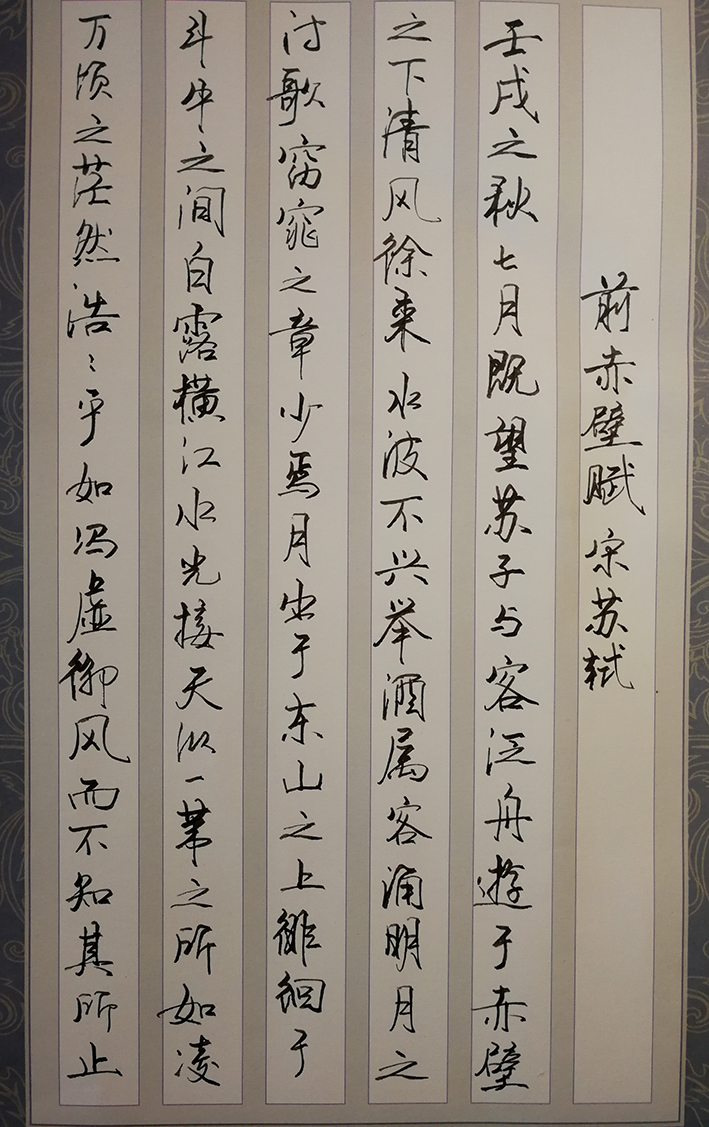 前赤壁赋 宋 苏轼
壬戌之秋七月既望苏子与客泛舟遊于赤壁
之下清风徐来水波不兴举酒属客诵明月之
诗歌窈窕之章少焉月出于东山之上徘徊于
斗牛之间白露横江水光接天纵一苇之所如凌
万顷之茫然浩〻乎如冯虚御风而不知其所止